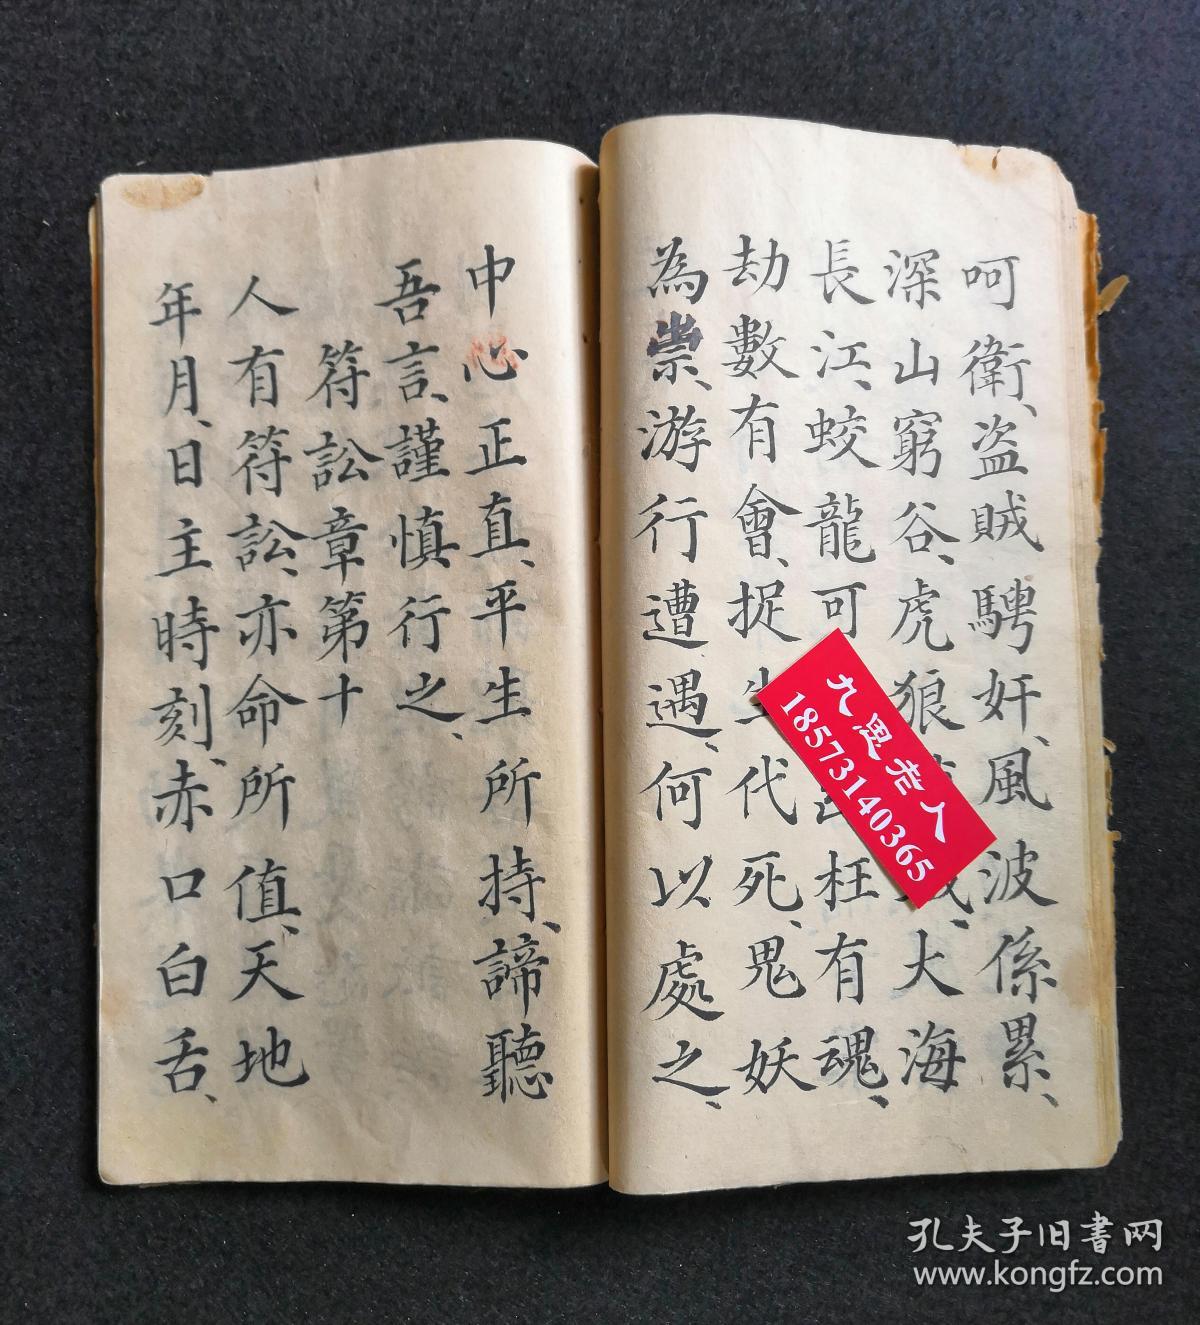 呵衛、盜賊騁奸、風波係累、
深山窮谷、虎狼、大海
長江、蛟龍可枉有魂、
劫數有會、捉生代死、鬼妖
為祟、游行遭遇、何以處之、
中心正直、平生所持、諦聽
吾言、謹慎行之、
符訟章第十
人有符訟、亦命所值、天地
年月、日主時刻、赤口白舌、
九思老人
18573140365
孔夫子旧书网
www.kongfz.com